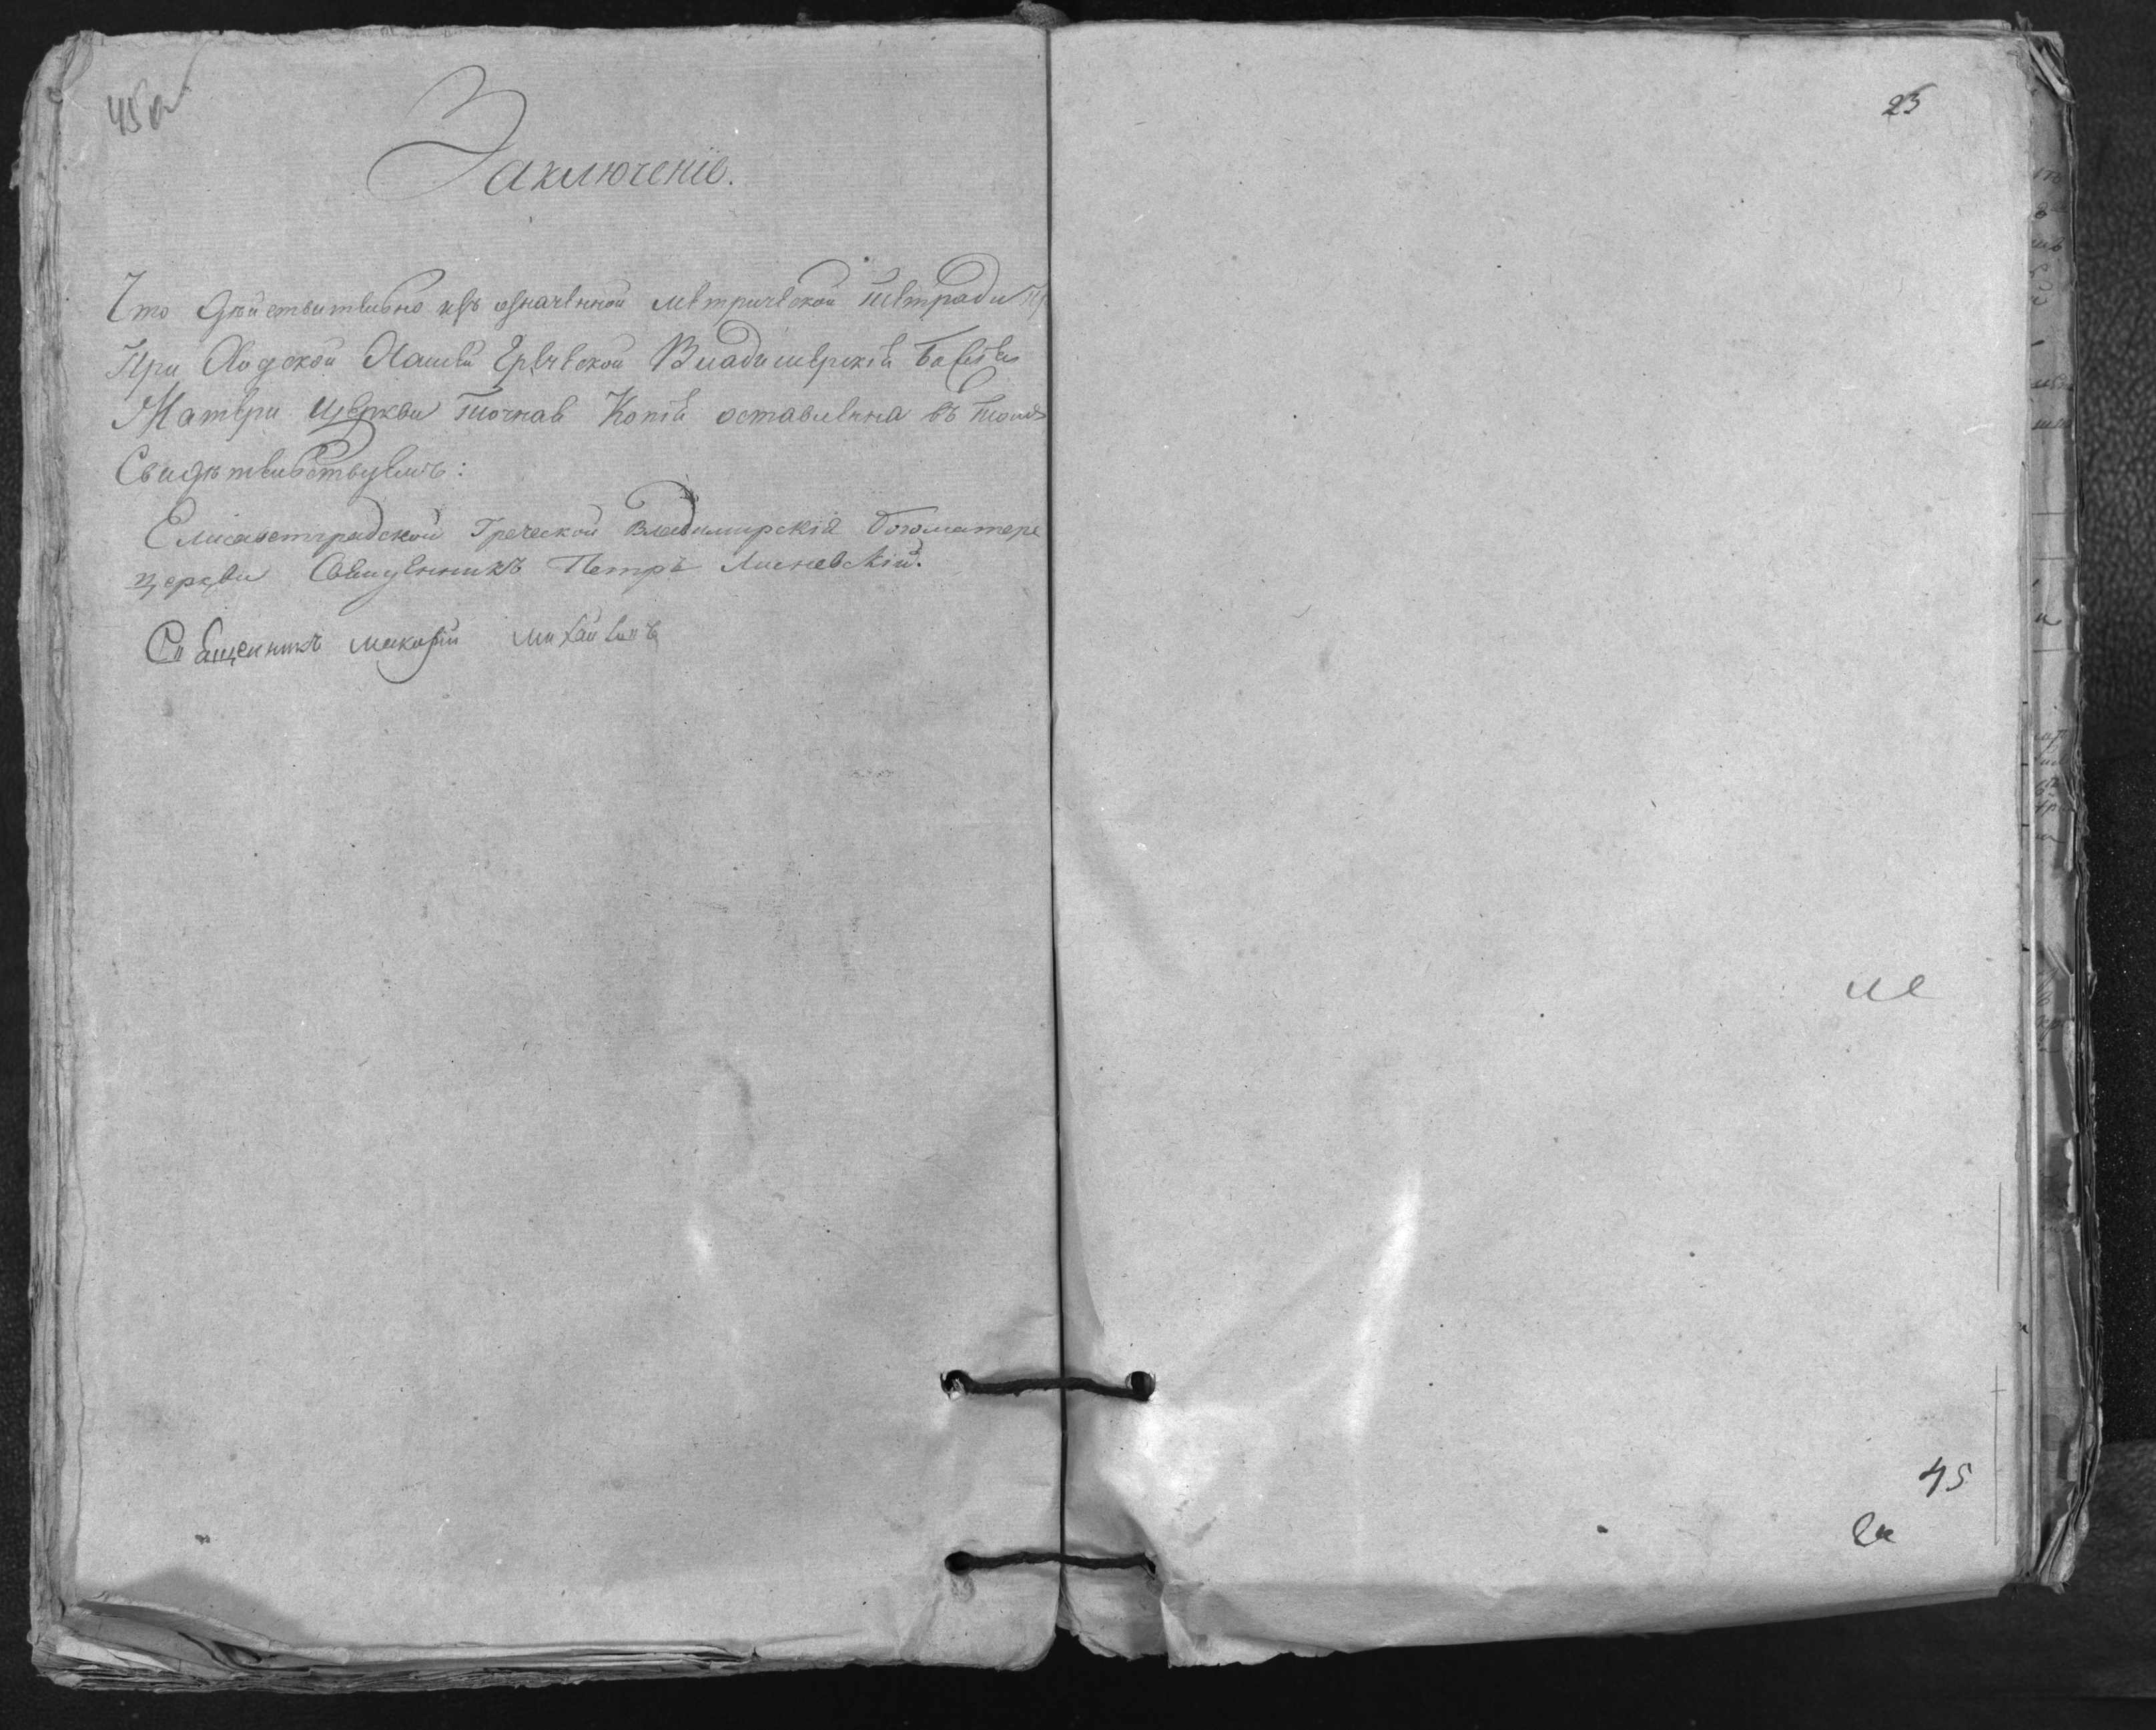 45а
Заключеніе.
Что действительно изъ означенной метрической тетради
При градской нашей Греческой Владимирскія Божія
Матери Церкви точная Копія оставлена въ томъ
Свидѣтельствуемъ:
Елисаветградской Греческой Владимирскія Богоматере
церкви Священникъ Петръ Лисневскій.
Священникъ Макарій
23
45